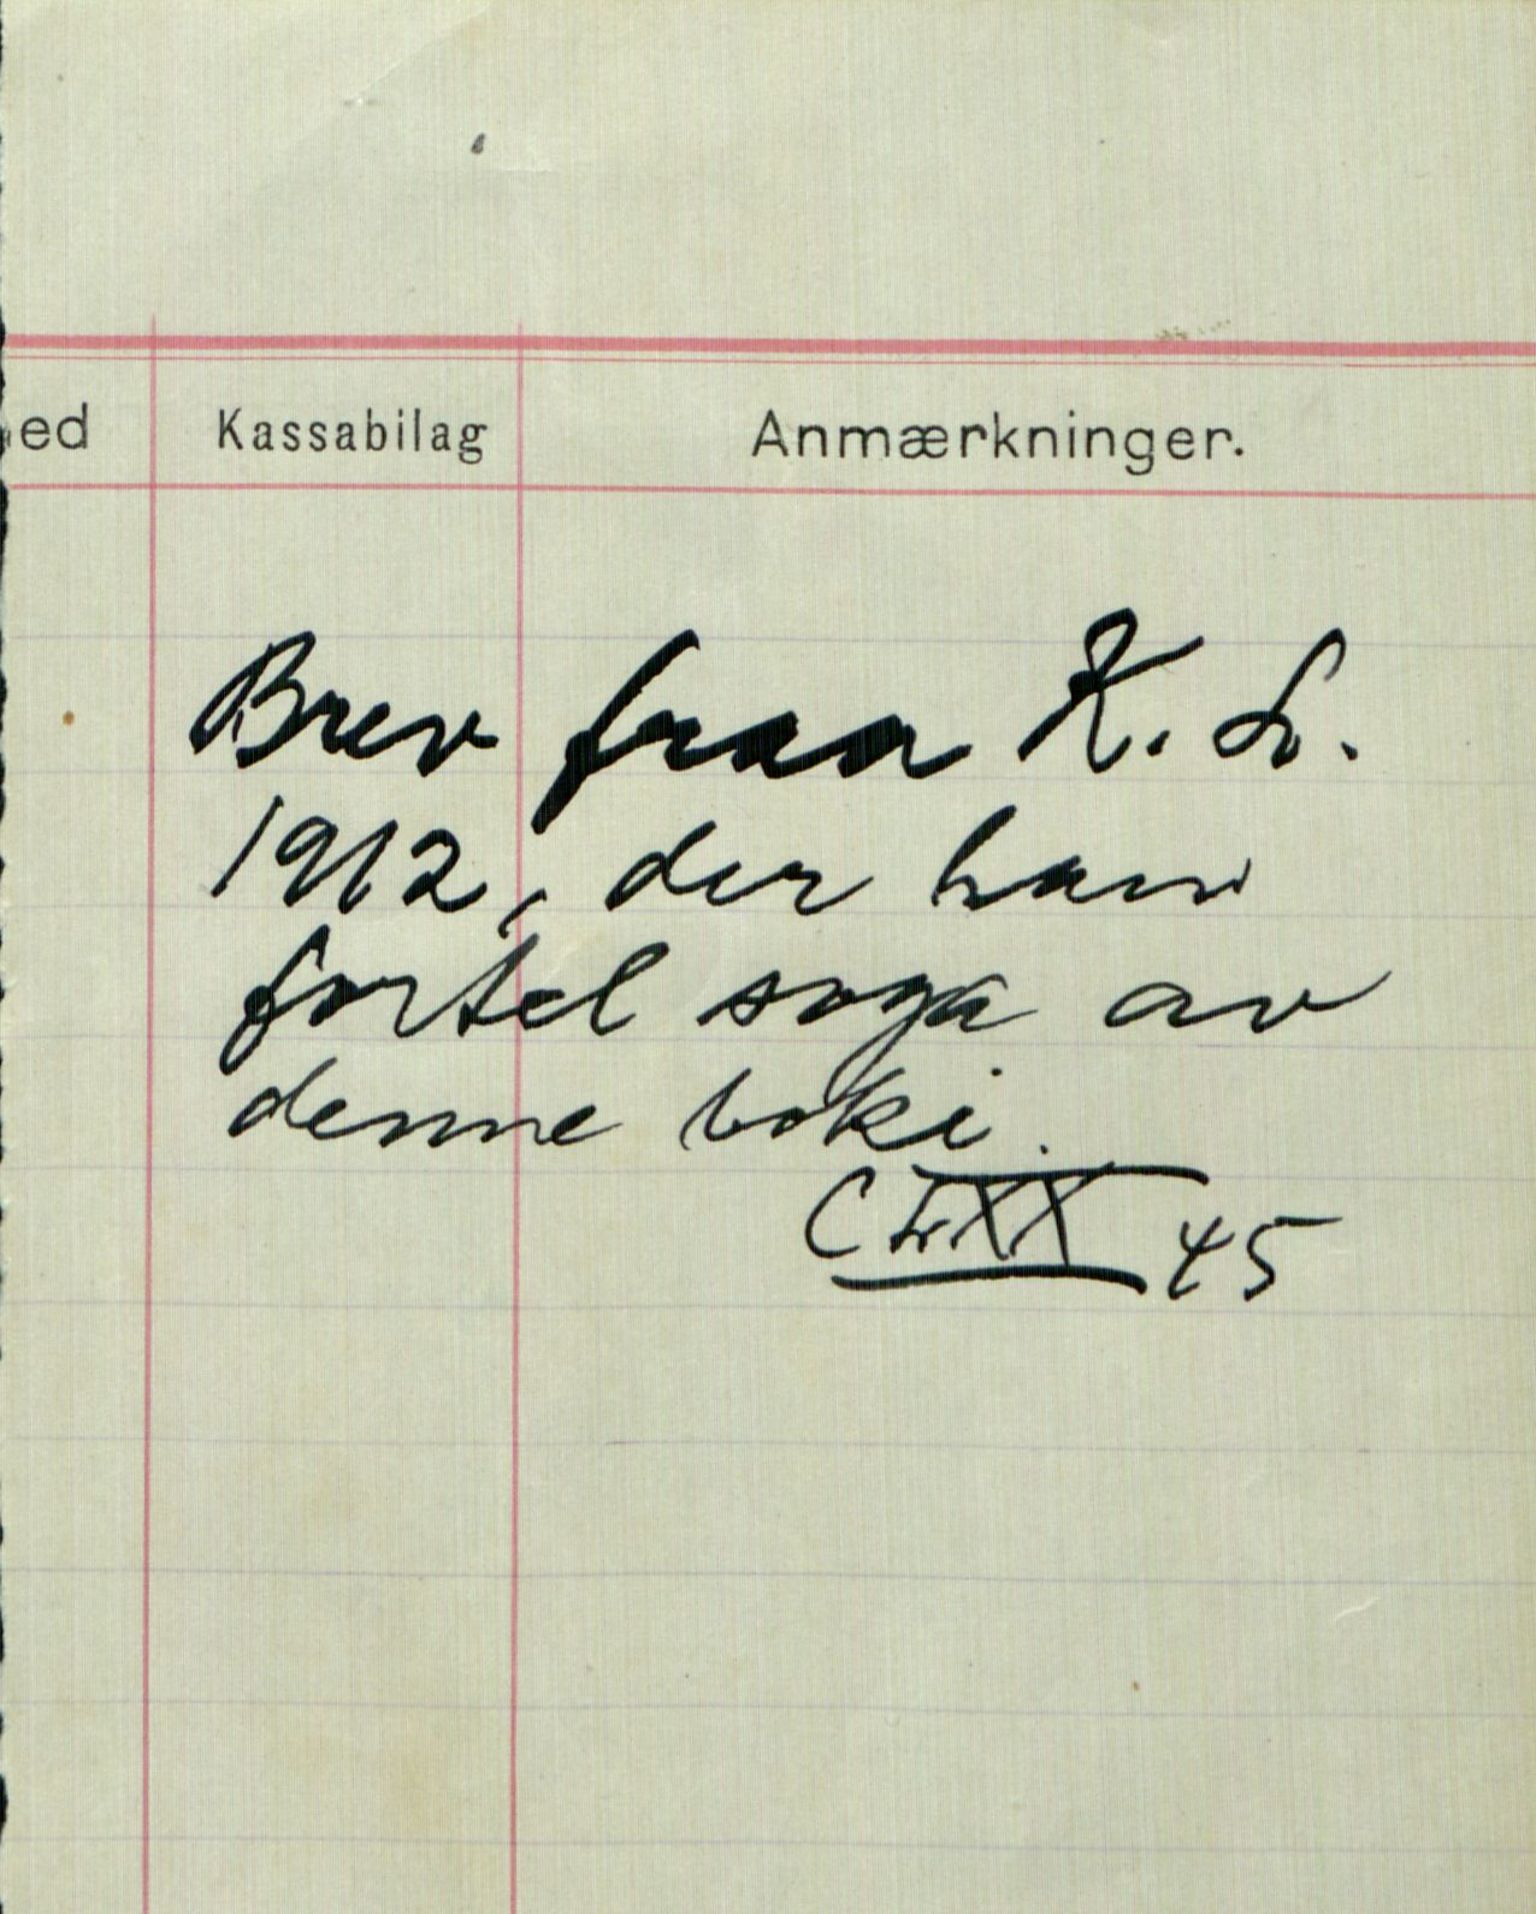 ed Kassabilag Anmærkninger.
Brev fraa K. L.
1912, der han
fortel soga av
denne boki.
CLXX 45